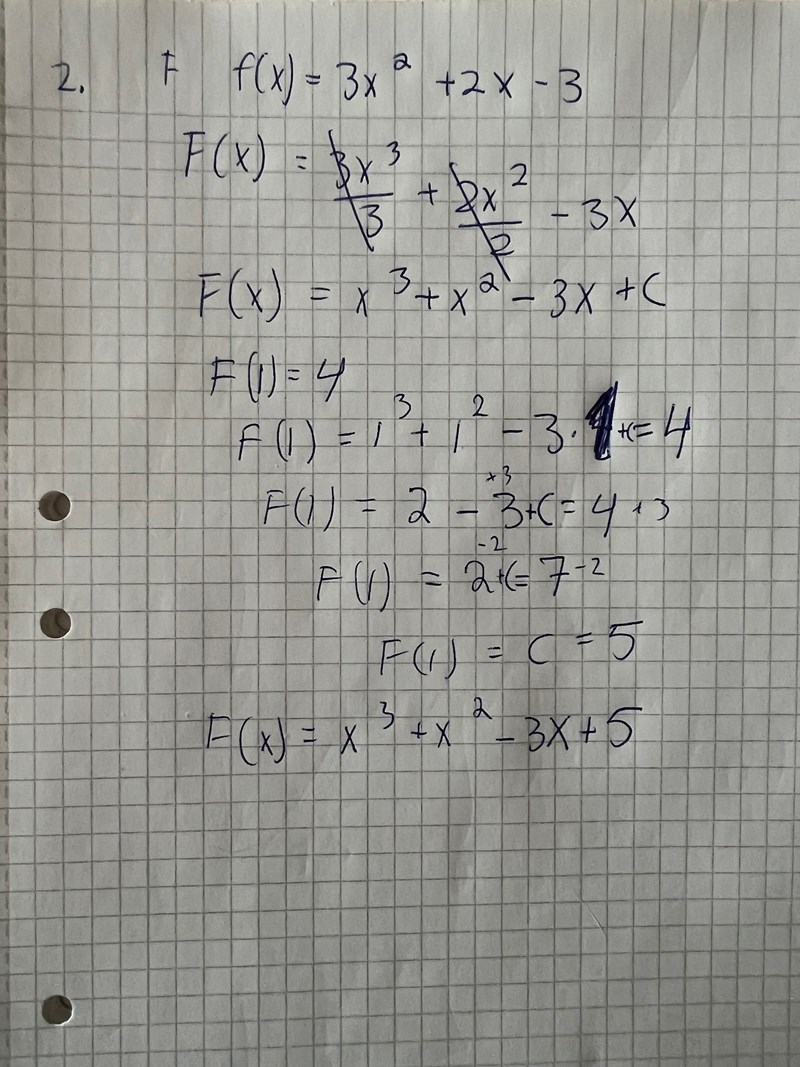 2. F f(x) = 3x² + 2x - 3
F(x) = 3x³/3 + 2x²/2 - 3x
F(x) = x³ + x² - 3x + C
F(1) = 4
F(1) = 1³ + 1² - 3 · 1 + C = 4
+3
F(1) = 2 - 3 + C = 4 + 3
-2
F(1) = 2 + C = 7 - 2
F(1) = C = 5
F(x) = x³ + x² - 3x + 5